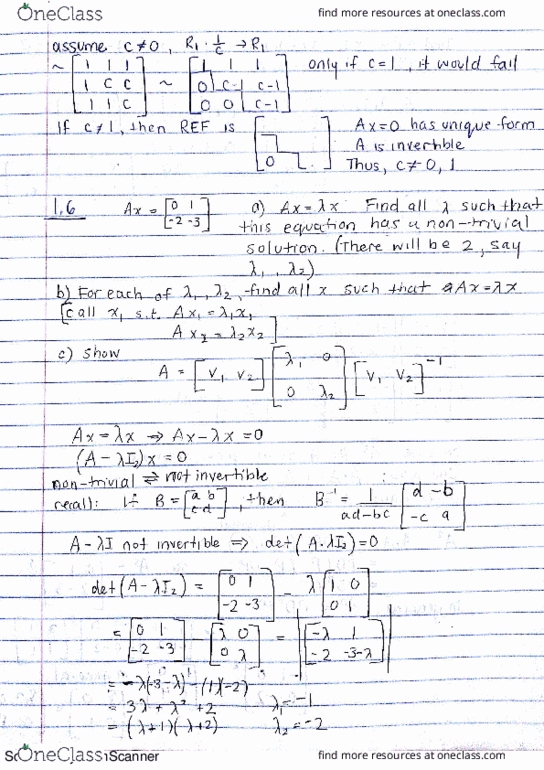 OneClass find more resources at oneclass.com
assume c≠0, R₁·1/c → R₁
~ [1 1 1; 1 c c; 1 1 c] ~ [1 1 1; 0 c-1 c-1; 0 0 c-1] only if c=1, it would fail
If c≠1, then REF is [ 0 ] Ax=0 has unique form
A is invertible
Thus, c≠0,1
1.6 Ax = [0 1; -2 -3] a) Ax=λx Find all λ such that
this equation has a non-trivial
solution. (There will be 2, say
λ₁, λ₂)
b) For each of λ₁, λ₂, find all x such that Ax=λx
[call x₁ s.t. Ax₁=λ₁x₁,
Ax₂=λ₂x₂]
c) Show
A = [v₁ v₂] [λ₁ 0; 0 λ₂] [v₁ v₂]⁻¹
Ax=λx ⇒ Ax-λx=0
(A-λI₂)x=0
non-trivial ⇌ not invertible
recall: If B=[a b; c d], then B⁻¹ = 1/(ad-bc) [d -b; -c a]
A-λI not invertible ⇒ det(A-λI₂)=0
det(A-λI₂) = [0 1; -2 -3] - λ[1 0; 0 1]
= [0 1; -2 -3] - [λ 0; 0 λ] = |[-λ 1; -2 -3-λ]|
= -λ(-3-λ) - (1)(-2)
= 3λ+λ²+2 λ₁=-1
= (λ+1)(λ+2) λ₂=-2
OneClass Scanner find more resources at oneclass.com